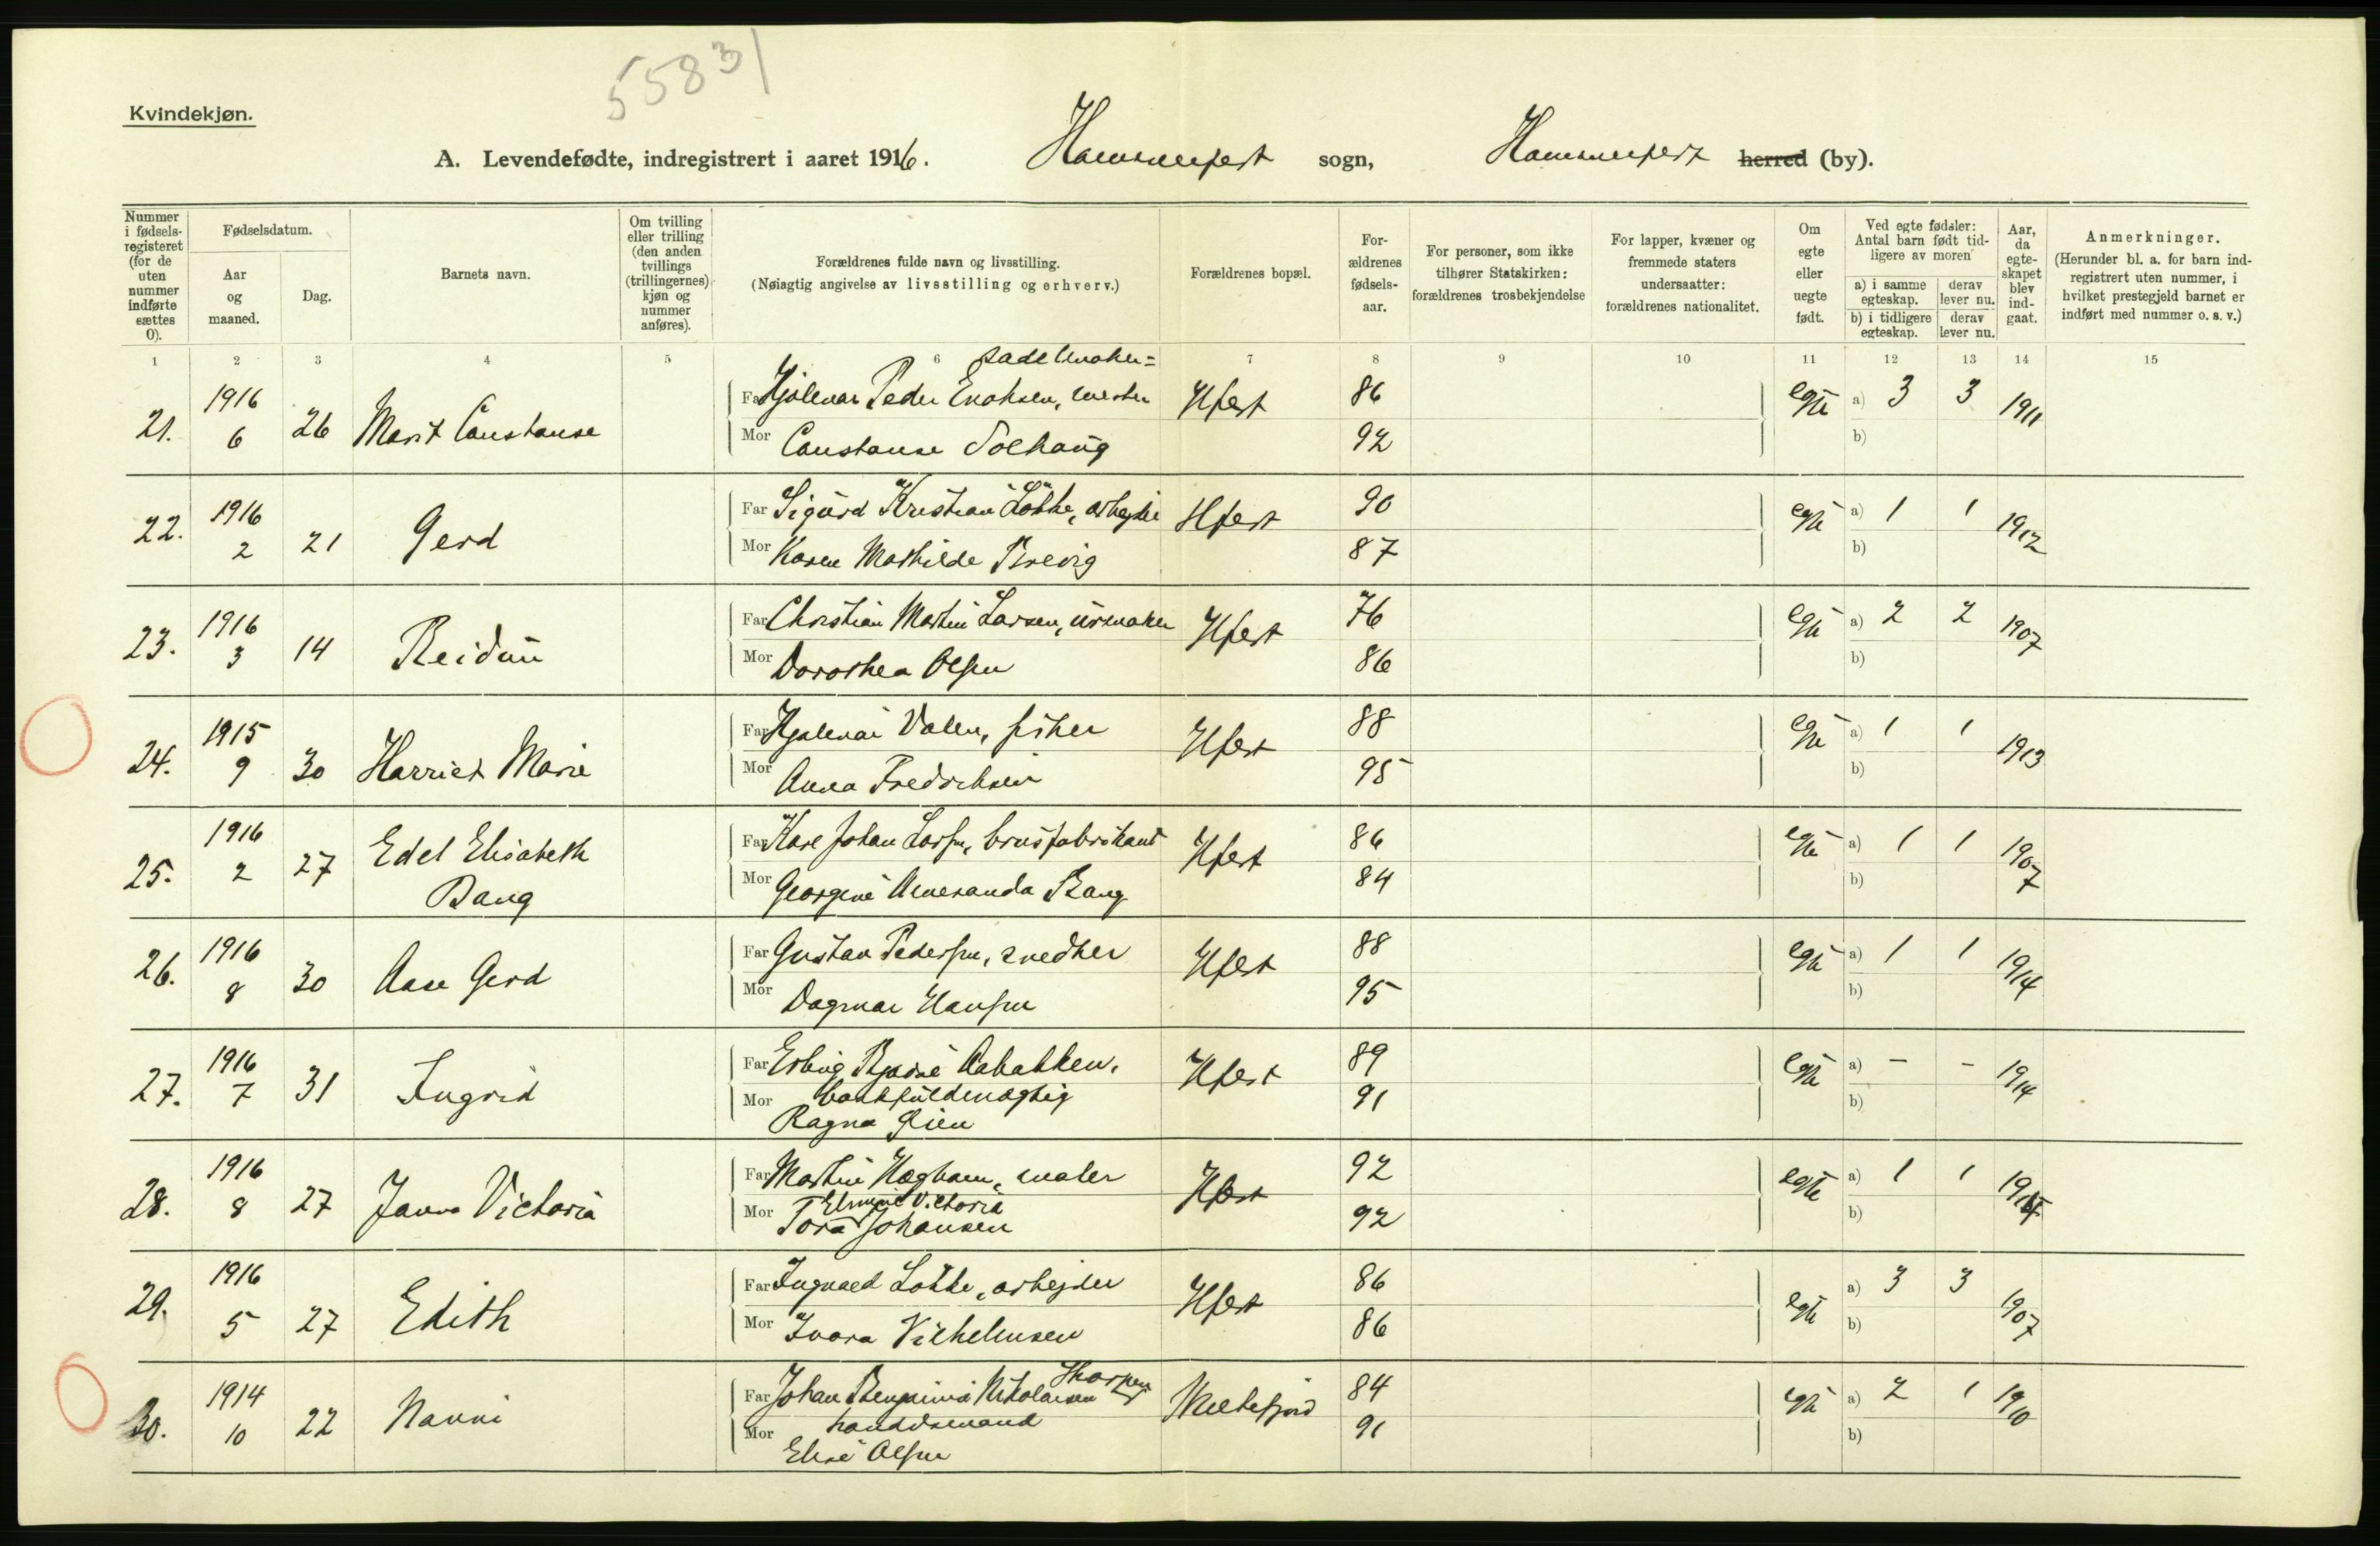 55831
Kvindekjøn.
A. Levendefødte, indregistrert i aaret 1916. Hammerfest sogn, Hammerfest herred (by).
Nummer i fødselsregisteret (for de uten nummer indførte sættes 0).
Fødselsdatum.
Aar og maaned.
Dag.
Barnets navn.
Om tvilling eller trilling (den anden tvillings (trillingernes) kjøn og nummer anføres).
Forældrenes fulde navn og livsstilling.
(Nøiagtig angivelse av livsstilling og erhverv.)
Forældrenes bopæl.
For-ældrenes fødsels-aar.
For personer, som ikke tilhører Statskirken: forældrenes trosbekjendelse
For lapper, kvæner og fremmede staters undersaatter: forældrenes nationalitet.
Om egte eller uegte født.
Ved egte fødsler: Antal barn født tidligere av moren
a) i samme egteskap. derav lever nu.
b) i tidligere egteskap. derav lever nu.
Aar, da egteskapet blev indgaat.
Anmerkninger.
(Herunder bl. a. for barn indregistrert uten nummer, i hvilket prestegjeld barnet er indført med nummer o. s. v.)
1 2 3 4 5 6 7 8 9 10 11 12 13 14 15
sadelmaker=
21. 1916 6 26 Marit Constanse Far Hjalmar Peder Enoksen, mester Hfest 86 egte a) 3 3 1911
Mor Constanse Solhaug 92 b)
22. 1916 2 21 Gerd Far Sigurd Kristian Løkke, arbejder Hfest 90 egte a) 1 1 1912
Mor Karen Mathilde Brevig 87 b)
23. 1916 3 14 Reidun Far Christian Martin Larsen, urmaker Hfest 76 egte a) 2 2 1907
Mor Dorothea Olsen 86 b)
24. 1915 9 30 Harriet Marie Far Hjalmar Valen, fisker Hfest 88 egte a) 1 1 1913
Mor Anna Fredriksen 95 b)
25. 1916 2 27 Edel Elisabeth Bang Far Karl Johan Larsen, brusfabrikant Hfest 86 egte a) 1 1 1907
Mor Georgine Amanda Bang 84 b)
26. 1916 8 30 Aase Gerd Far Gustav Pedersen, snedker Hfest 88 egte a) 1 1 1914
Mor Dagmar Hansen 95 b)
27. 1916 7 31 Ingrid Far Erling Bjarne Aabakken, Hfest 89 egte a) - - 1914
Mor bankfuldmægtig 91 b)
Ragna Lien
28. 1916 8 27 Janna Victoria Far Martin Hagbam, maler Hfest 92 egte a) 1 1
Elmine Victoria
Mor Tora Johansen 92 b)
29. 1916 5 27 Edith Far Ingvald Løkke, arbejder Hfest 86 egte a) 3 3 1907
Mor Ivara Vilhelmsen 86 b)
30. 1914 10 22 Nanni Far Johan Benjamin Nikolaisen 84 egte a) 2 1 1910
handelsmand
Mor 91 b)
Elise Olsen